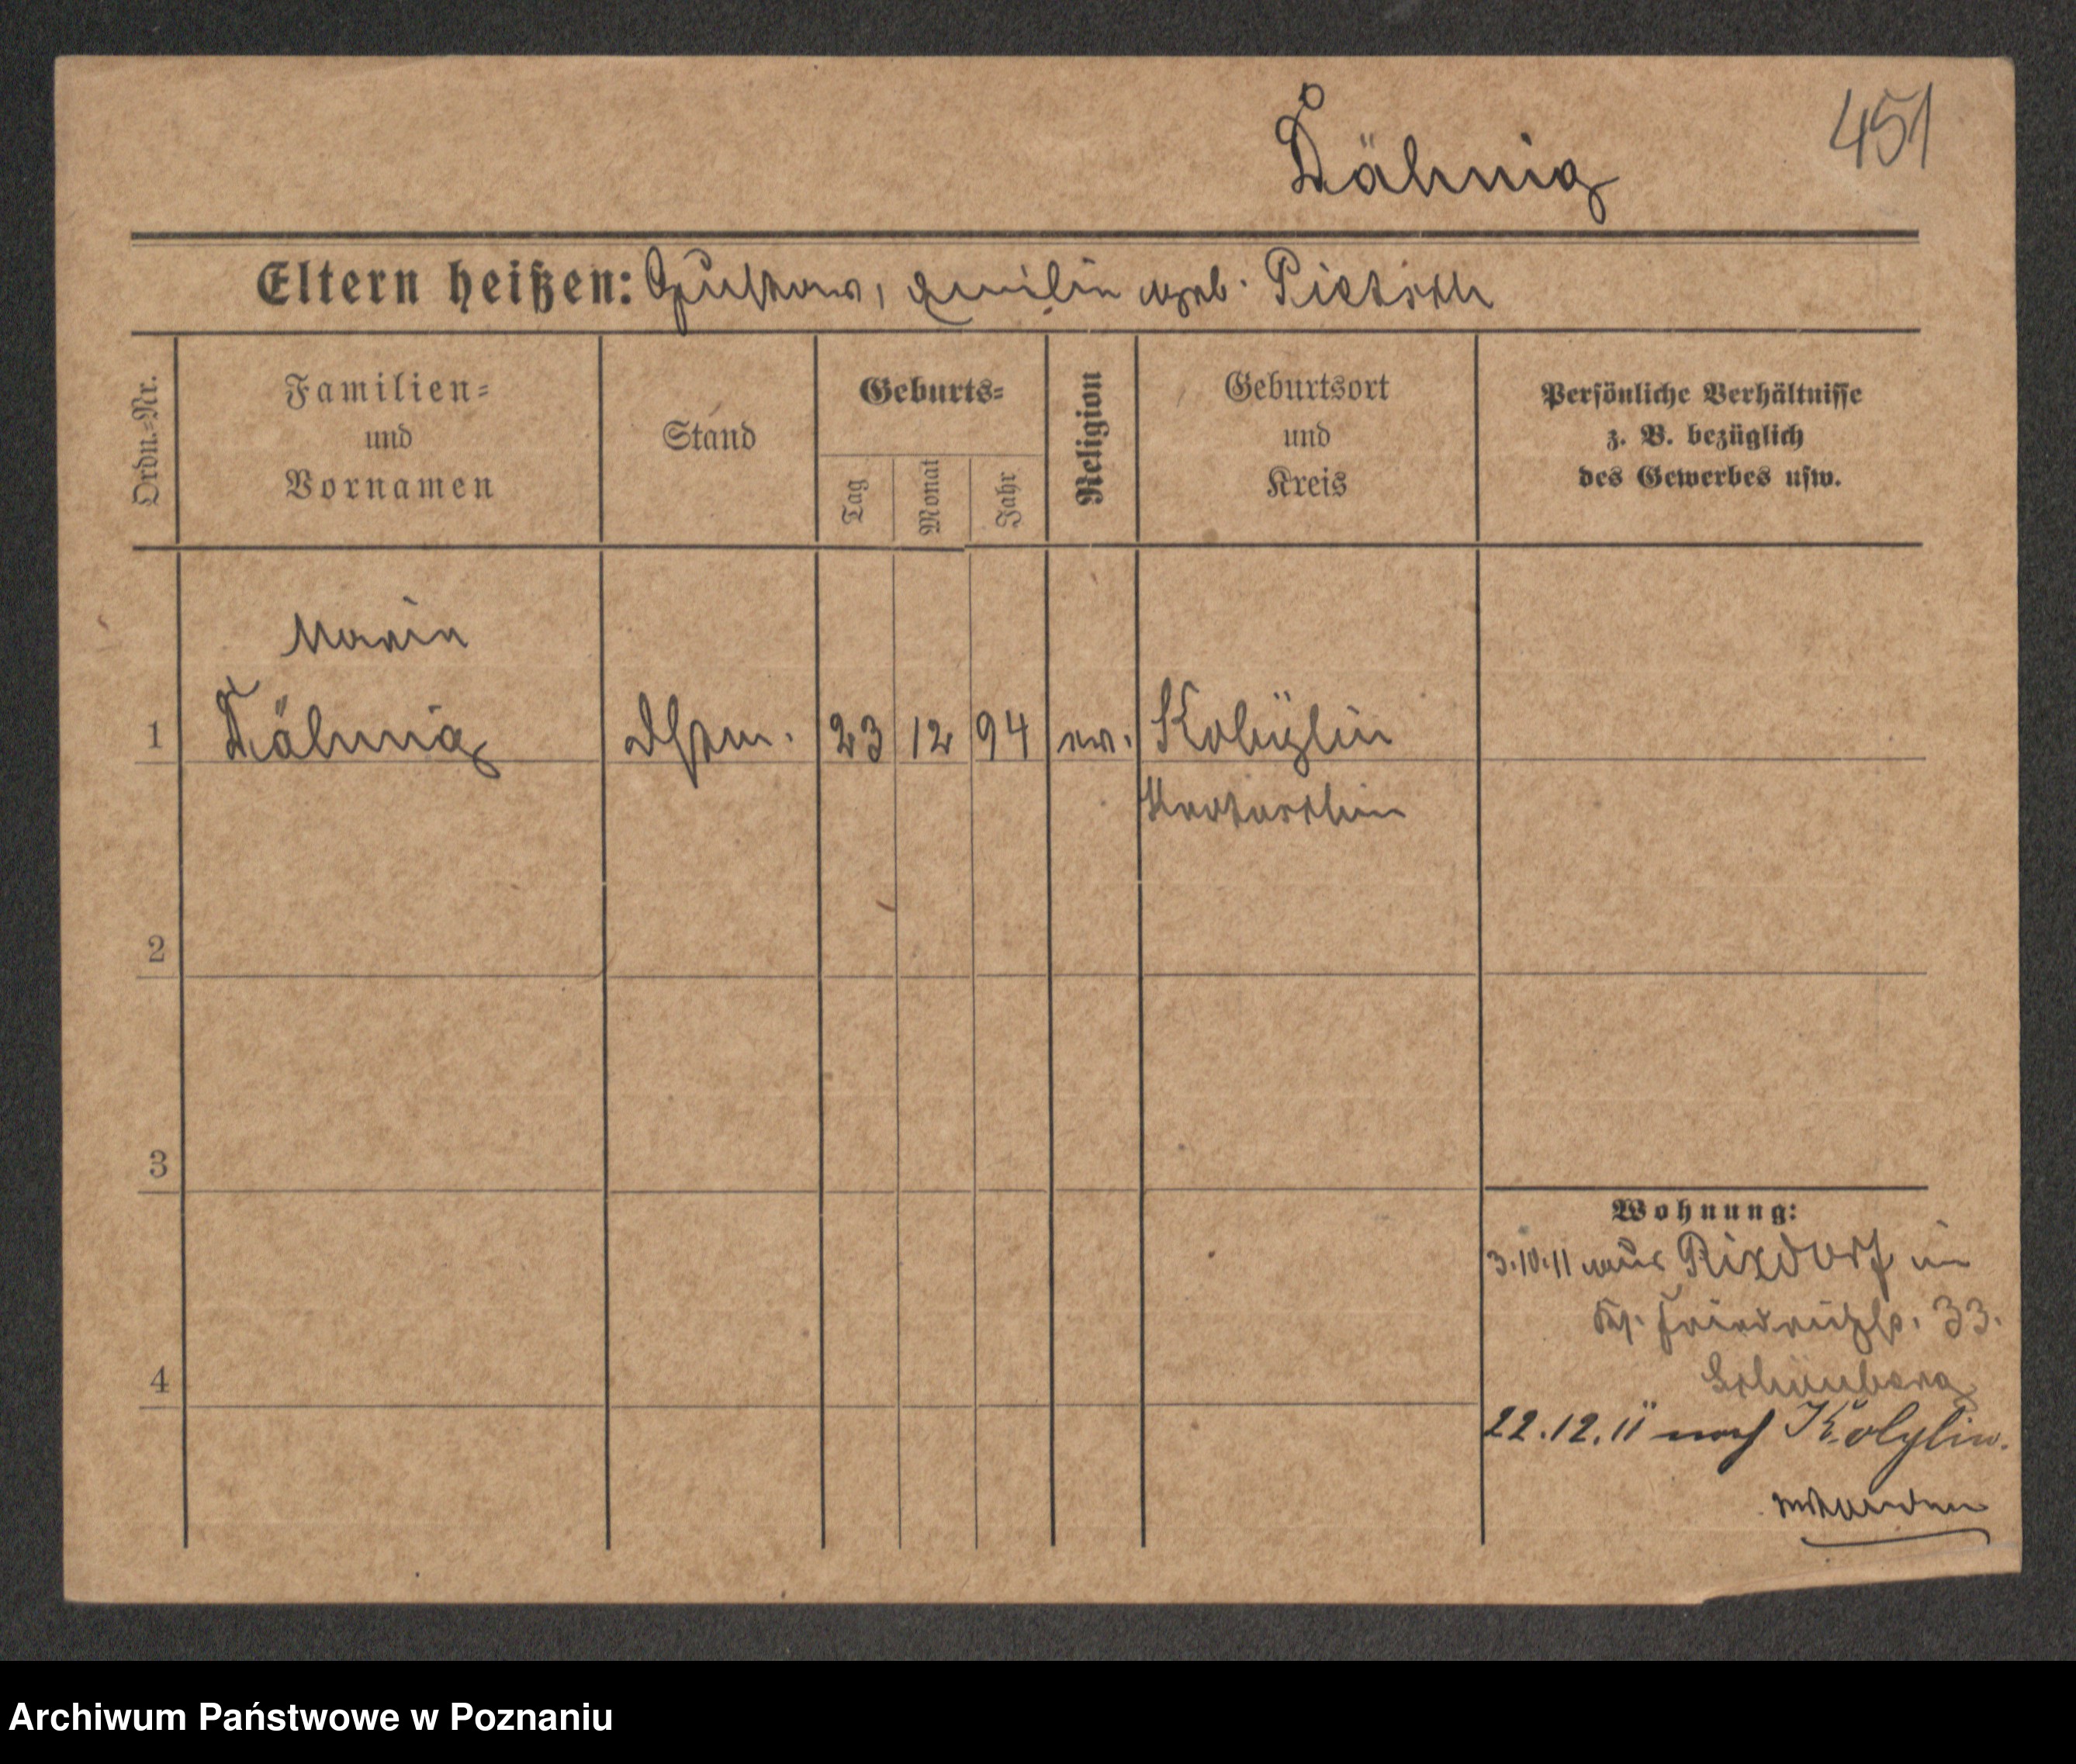 451
Dähnig
Eltern heißen: Gustav, Emilie geb. Pietsch
Ordn.-Nr.
Familien-
und
Vornamen
Stand
Geburts-
Tag
Monat
Jahr
Religion
Geburtsort
und
Kreis
Persönliche Verhältnisse
z. B. bezüglich
des Gewerbes usw.
Marie
1 Dähnig Dstm. 23 12 94 ev. Kobylin
Krotoschin
2
3
4
Wohnung:
3.10.11 aus Rixdorf in
33.
22.12.11 nach Kobylin.
Archiwum Państwowe w Poznaniu